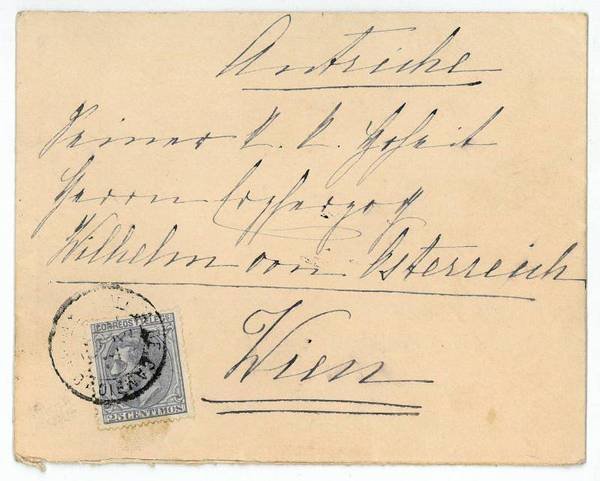 Autriche
Seiner K. K. Hoheit
Herrn Erzherzog
Wilhelm von Österreich
Wien
CORREOS Y TELEGS
25 CENTIMOS
CAMBIO